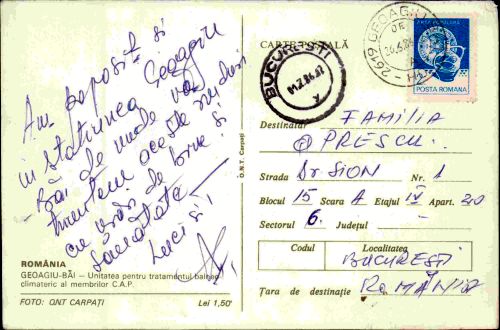 Am poposit și
in stațiunea Geoagiu
- Băi de unde vă
trimitem aceste
cu urări de bine și
sănătate
Luci și
ROMÂNIA
GEOAGIU-BĂI — Unitatea pentru tratamentul balneo-
climateric al membrilor C.A.P.
FOTO: ONT CARPAȚI Lei 1,50
O.N.T. Carpați
CARTE POȘTALĂ
2619 GEOAGIU
BUCUREȘTI
POSTA ROMANA
Destinatar FAMILIA
OPRESCU.
Strada Dr SION Nr. 1
Blocul 15 Scara A Etajul IV Apart. 20
Sectorul 6. Județul
Codul Localitatea
BUCUREȘTI
Țara de destinație ROMÂNIA